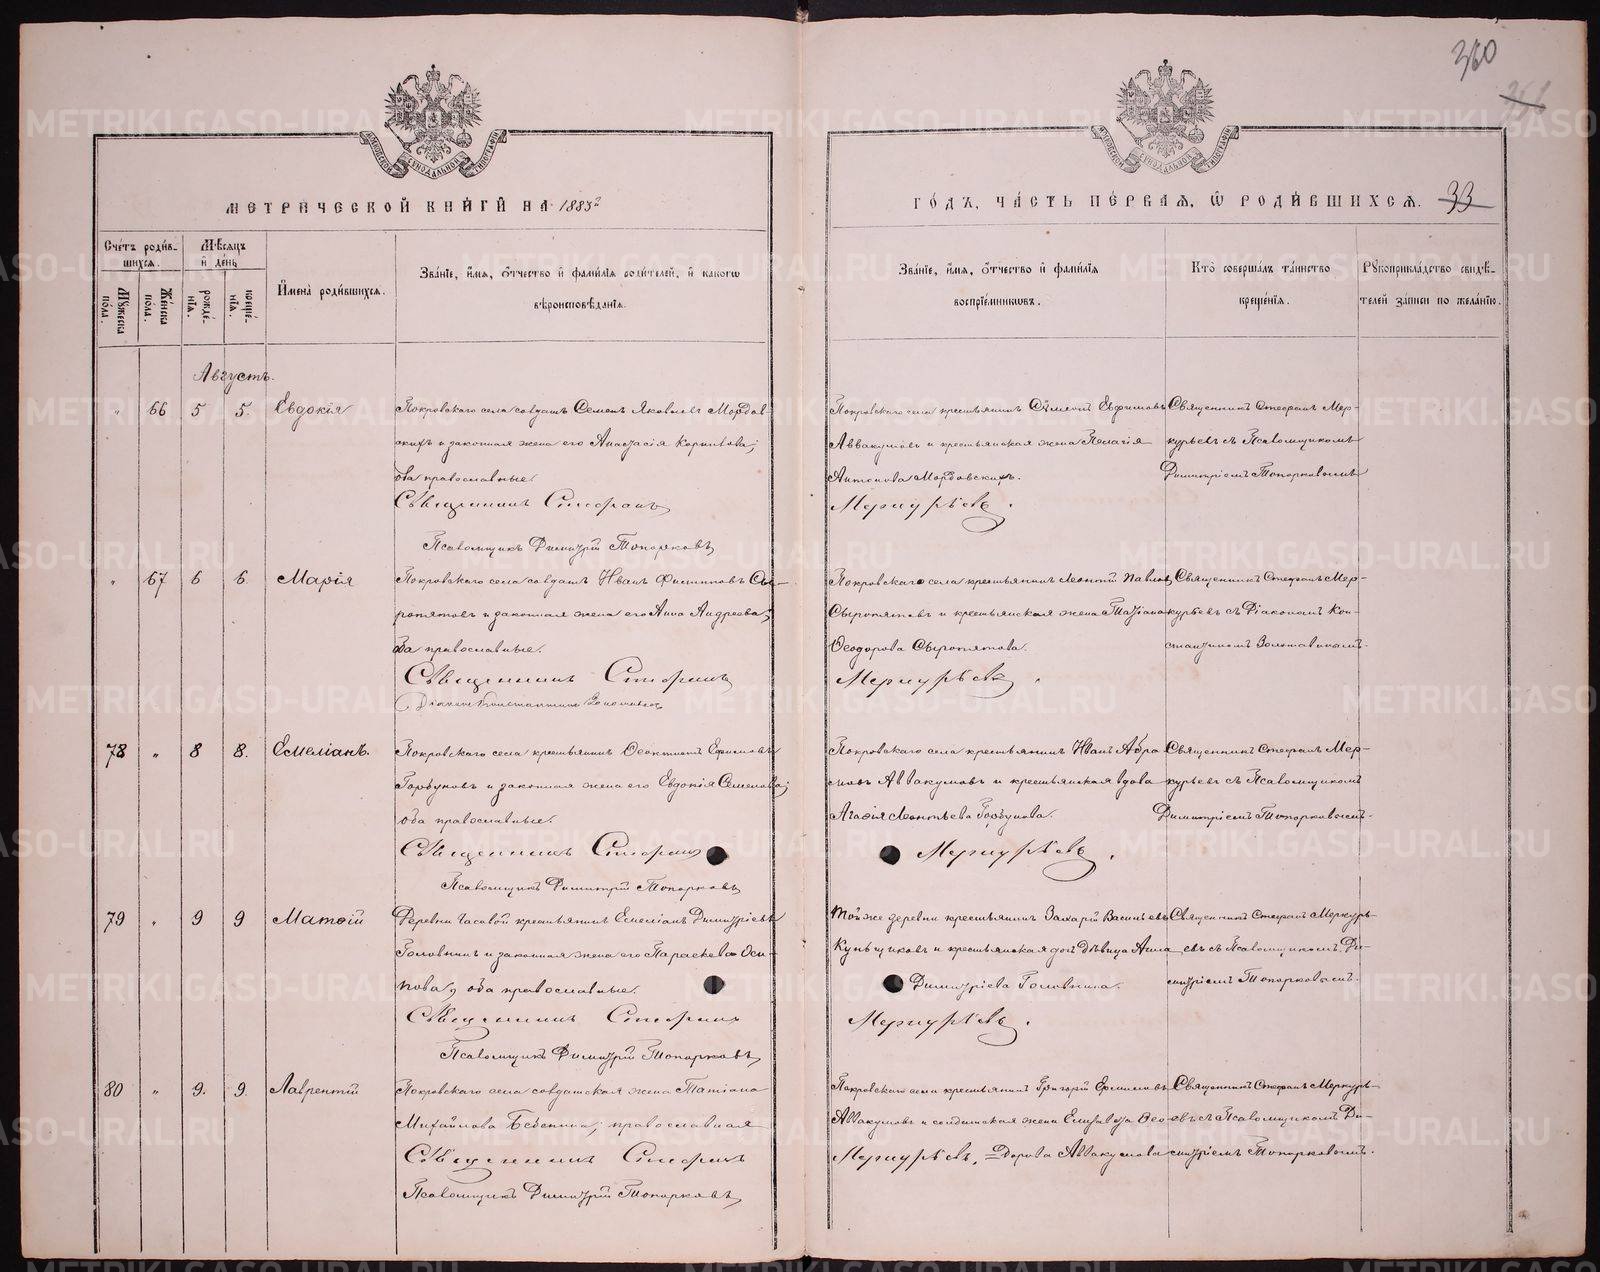 360
МЕТРИЧЕСКОЙ КНИГИ НА 1883 ГОДЪ, ЧАСТЬ ПЕРВАЯ, Ѡ РОДИВШИХСЯ. 33
Счетъ родив-
шихся.
Мѣсяцъ
и день
Мужеска пола.
Женска пола.
рожде-
нїя.
креще-
нїя.
Имена родившихся.
Званїе, имя, отчество и фамилїя родителей, и какого
вѣроисповѣданїя.
Званїе, имя, отчество и фамилїя
воспрїемниковъ.
Кто совершалъ таинство
крещенїя.
Рукоприкладство свидѣ-
телей записи по желанїю.
Августъ.
" 66 5 5. Евдокія
Покровскаго села солдатъ Семенъ Яковлевъ Мордов-
скихъ и законная жена его Анастасія Корнилова;
оба православные.
Священникъ Стефанъ Меркурьевъ.
Псаломщикъ Димитрій Топорковъ
Покровскаго села крестьянинъ Сѵмеонъ Евфимовъ
Аввакумовъ и крестьянская жена Пелагія
Антонова Мордовскихъ.
Священникъ Стефанъ Мер-
курьевъ съ Псаломщикомъ
Димитріемъ Топорковымъ
" 67 6 6. Марія
Покровскаго села солдатъ Иванъ Филипповъ Сы-
ропятовъ и законная жена его Анна Андреева;
оба православные.
Священникъ Стефанъ Меркурьевъ.
Діаконъ Константинъ
Покровскаго села крестьянинъ Леонтій Павловъ
Сыропятовъ и крестьянская жена Татіана
Ѳеодорова Сыропятова.
Священникъ Стефанъ Мер-
курьевъ съ Діакономъ Кон-
стантиномъ
78 " 8 8. Емеліанъ.
Покровскаго села крестьянинъ Ѳеоктистъ Ефимовъ
Горбуновъ и законная жена его Евдокія Семенова;
оба православные.
Священникъ Стефанъ Меркурьевъ.
Псаломщикъ Димитрій Топорковъ
Покровскаго села крестьянинъ Иванъ Абра-
мовъ Аввакумовъ и крестьянская вдова
Агафія Леонтьева Горбунова.
Священникъ Стефанъ Мер-
курьевъ съ Псаломщикомъ
Димитріемъ Топорковымъ.
79 " 9 9 Матѳій
Деревни Часовой крестьянинъ Емеліанъ Димитріевъ
Головинъ и законная жена его Параскева Оси-
пова, оба православные.
Священникъ Стефанъ Меркурьевъ.
Псаломщикъ Димитрій Топорковъ
Той же деревни крестьянинъ Захарій Васильевъ
Куньщиковъ и крестьянская дочь дѣвица Анна
Димитріева Головина.
Священникъ Стефанъ Меркурь-
евъ съ Псаломщикомъ Ди-
митріемъ Топорковымъ.
80 " 9. 9. Лаврентій
Покровскаго села солдатская жена Татіана
Михайлова Бебенина; православная
Священникъ Стефанъ Меркурьевъ.
Псаломщикъ Димитрій Топорковъ
Покровскаго села крестьянинъ Григорій Ермиловъ
Аввакумовъ и солдатская жена Елизавета Ѳео-
дорова Аввакумова
Священникъ Стефанъ Меркурь-
евъ съ Псаломщикомъ Ди-
митріемъ Топорковымъ.
METRIKI.GASO-URAL.RU